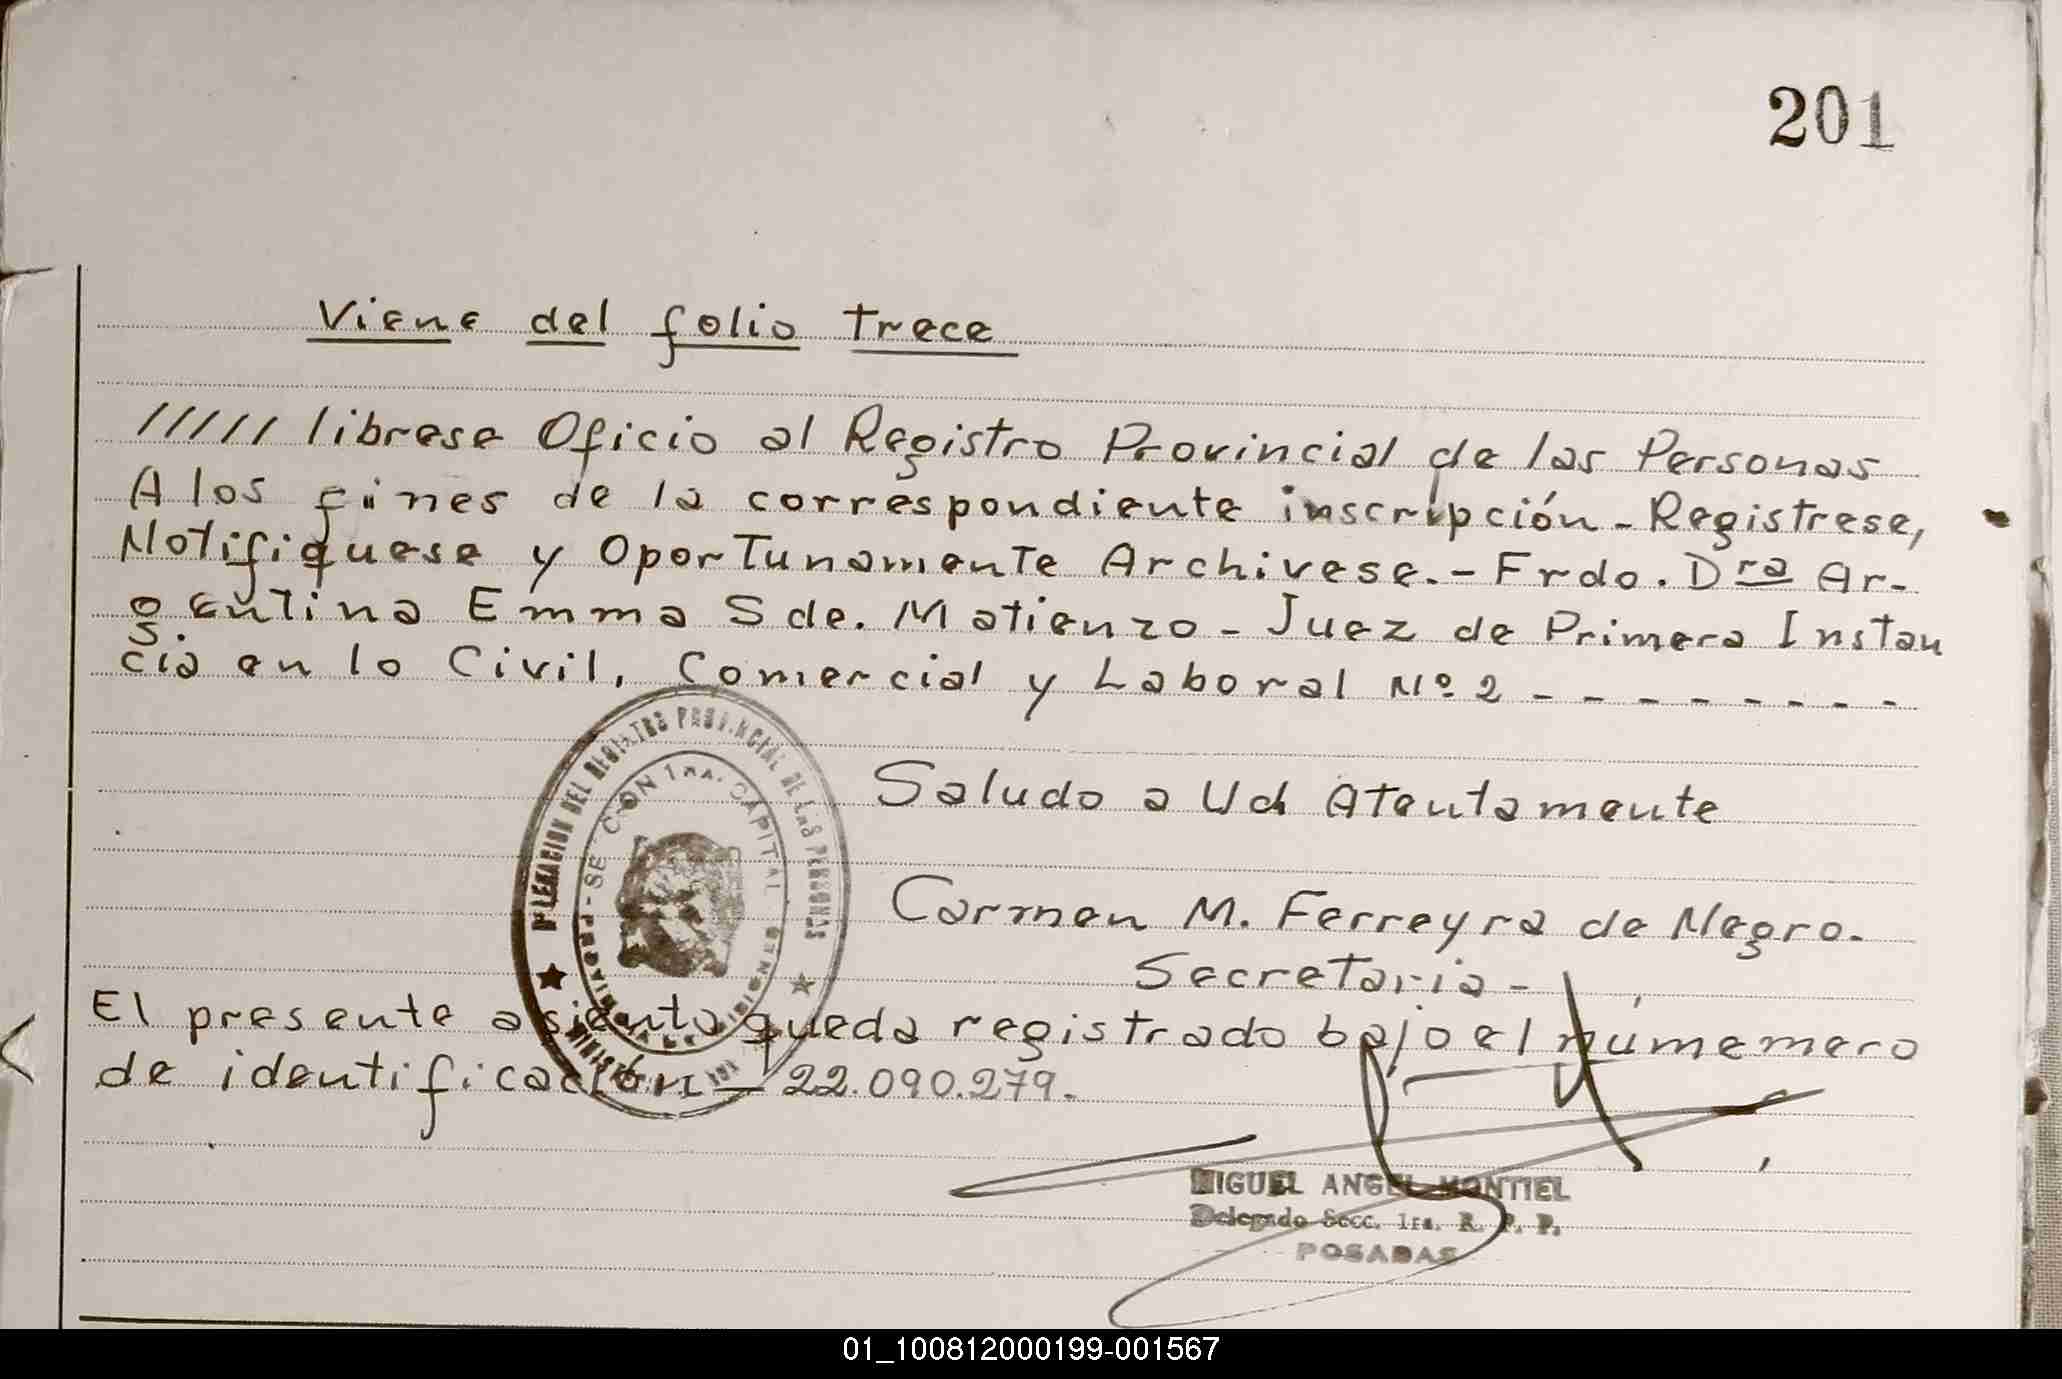 201
Viene del folio trece
///// librese Oficio al Registro Provincial de las Personas
A los fines de la correspondiente inscripción - Registrese,
Notifiquese y Oportunamente Archivese. - Frdo. Dra Ar-
gentina Emma S de. Matienzo - Juez de Primera Instan
cia en lo Civil, Comercial y Laboral Nº 2 - - - - - - - -
DEL REGISTRO PROVINCIAL DE LAS PERSONAS
1RA. CAPITAL
Saludo a Ud Atentamente
Carmen M. Ferreyra de Negro.
Secretaria -
El presente asiento queda registrado bajo el númemero
de identificación - 22.090.279.
MIGUEL ANGEL MONTIEL
Delegado Secc. 1ra. R. P. P.
POSADAS
01_100812000199-001567